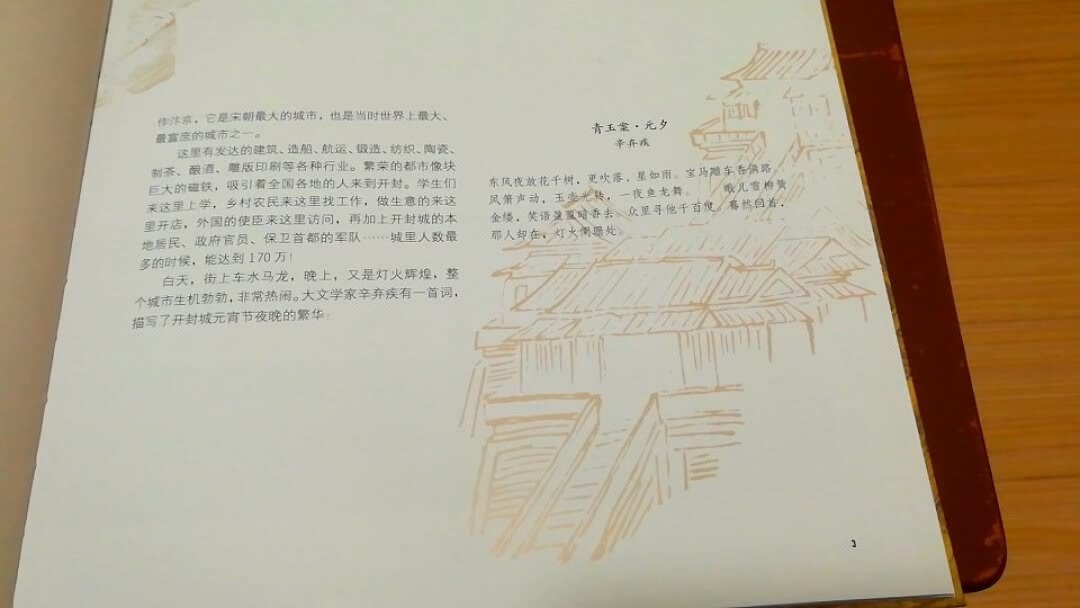 作汴京，它是宋朝最大的城市，也是当时世界上最大、
最富庶的城市之一。
这里有发达的建筑、造船、航运、锻造、纺织、陶瓷、
制茶、酿酒、雕版印刷等各种行业。繁荣的都市像块
巨大的磁铁，吸引着全国各地的人来到开封。学生们
来这里上学，乡村农民来这里找工作，做生意的来这
里开店，外国的使臣来这里访问，再加上开封城的本
地居民、政府官员、保卫首都的军队……城里人数最
多的时候，能达到170万！
白天，街上车水马龙，晚上，又是灯火辉煌，整
个城市生机勃勃，非常热闹。大文学家辛弃疾有一首词，
描写了开封城元宵节夜晚的繁华：
青玉案·元夕
辛弃疾
东风夜放花千树，更吹落、星如雨。宝马雕车香满路。
风箫声动，玉壶光转，一夜鱼龙舞。 蛾儿雪柳黄
金缕，笑语盈盈暗香去。众里寻他千百度。蓦然回首，
那人却在，灯火阑珊处。
3